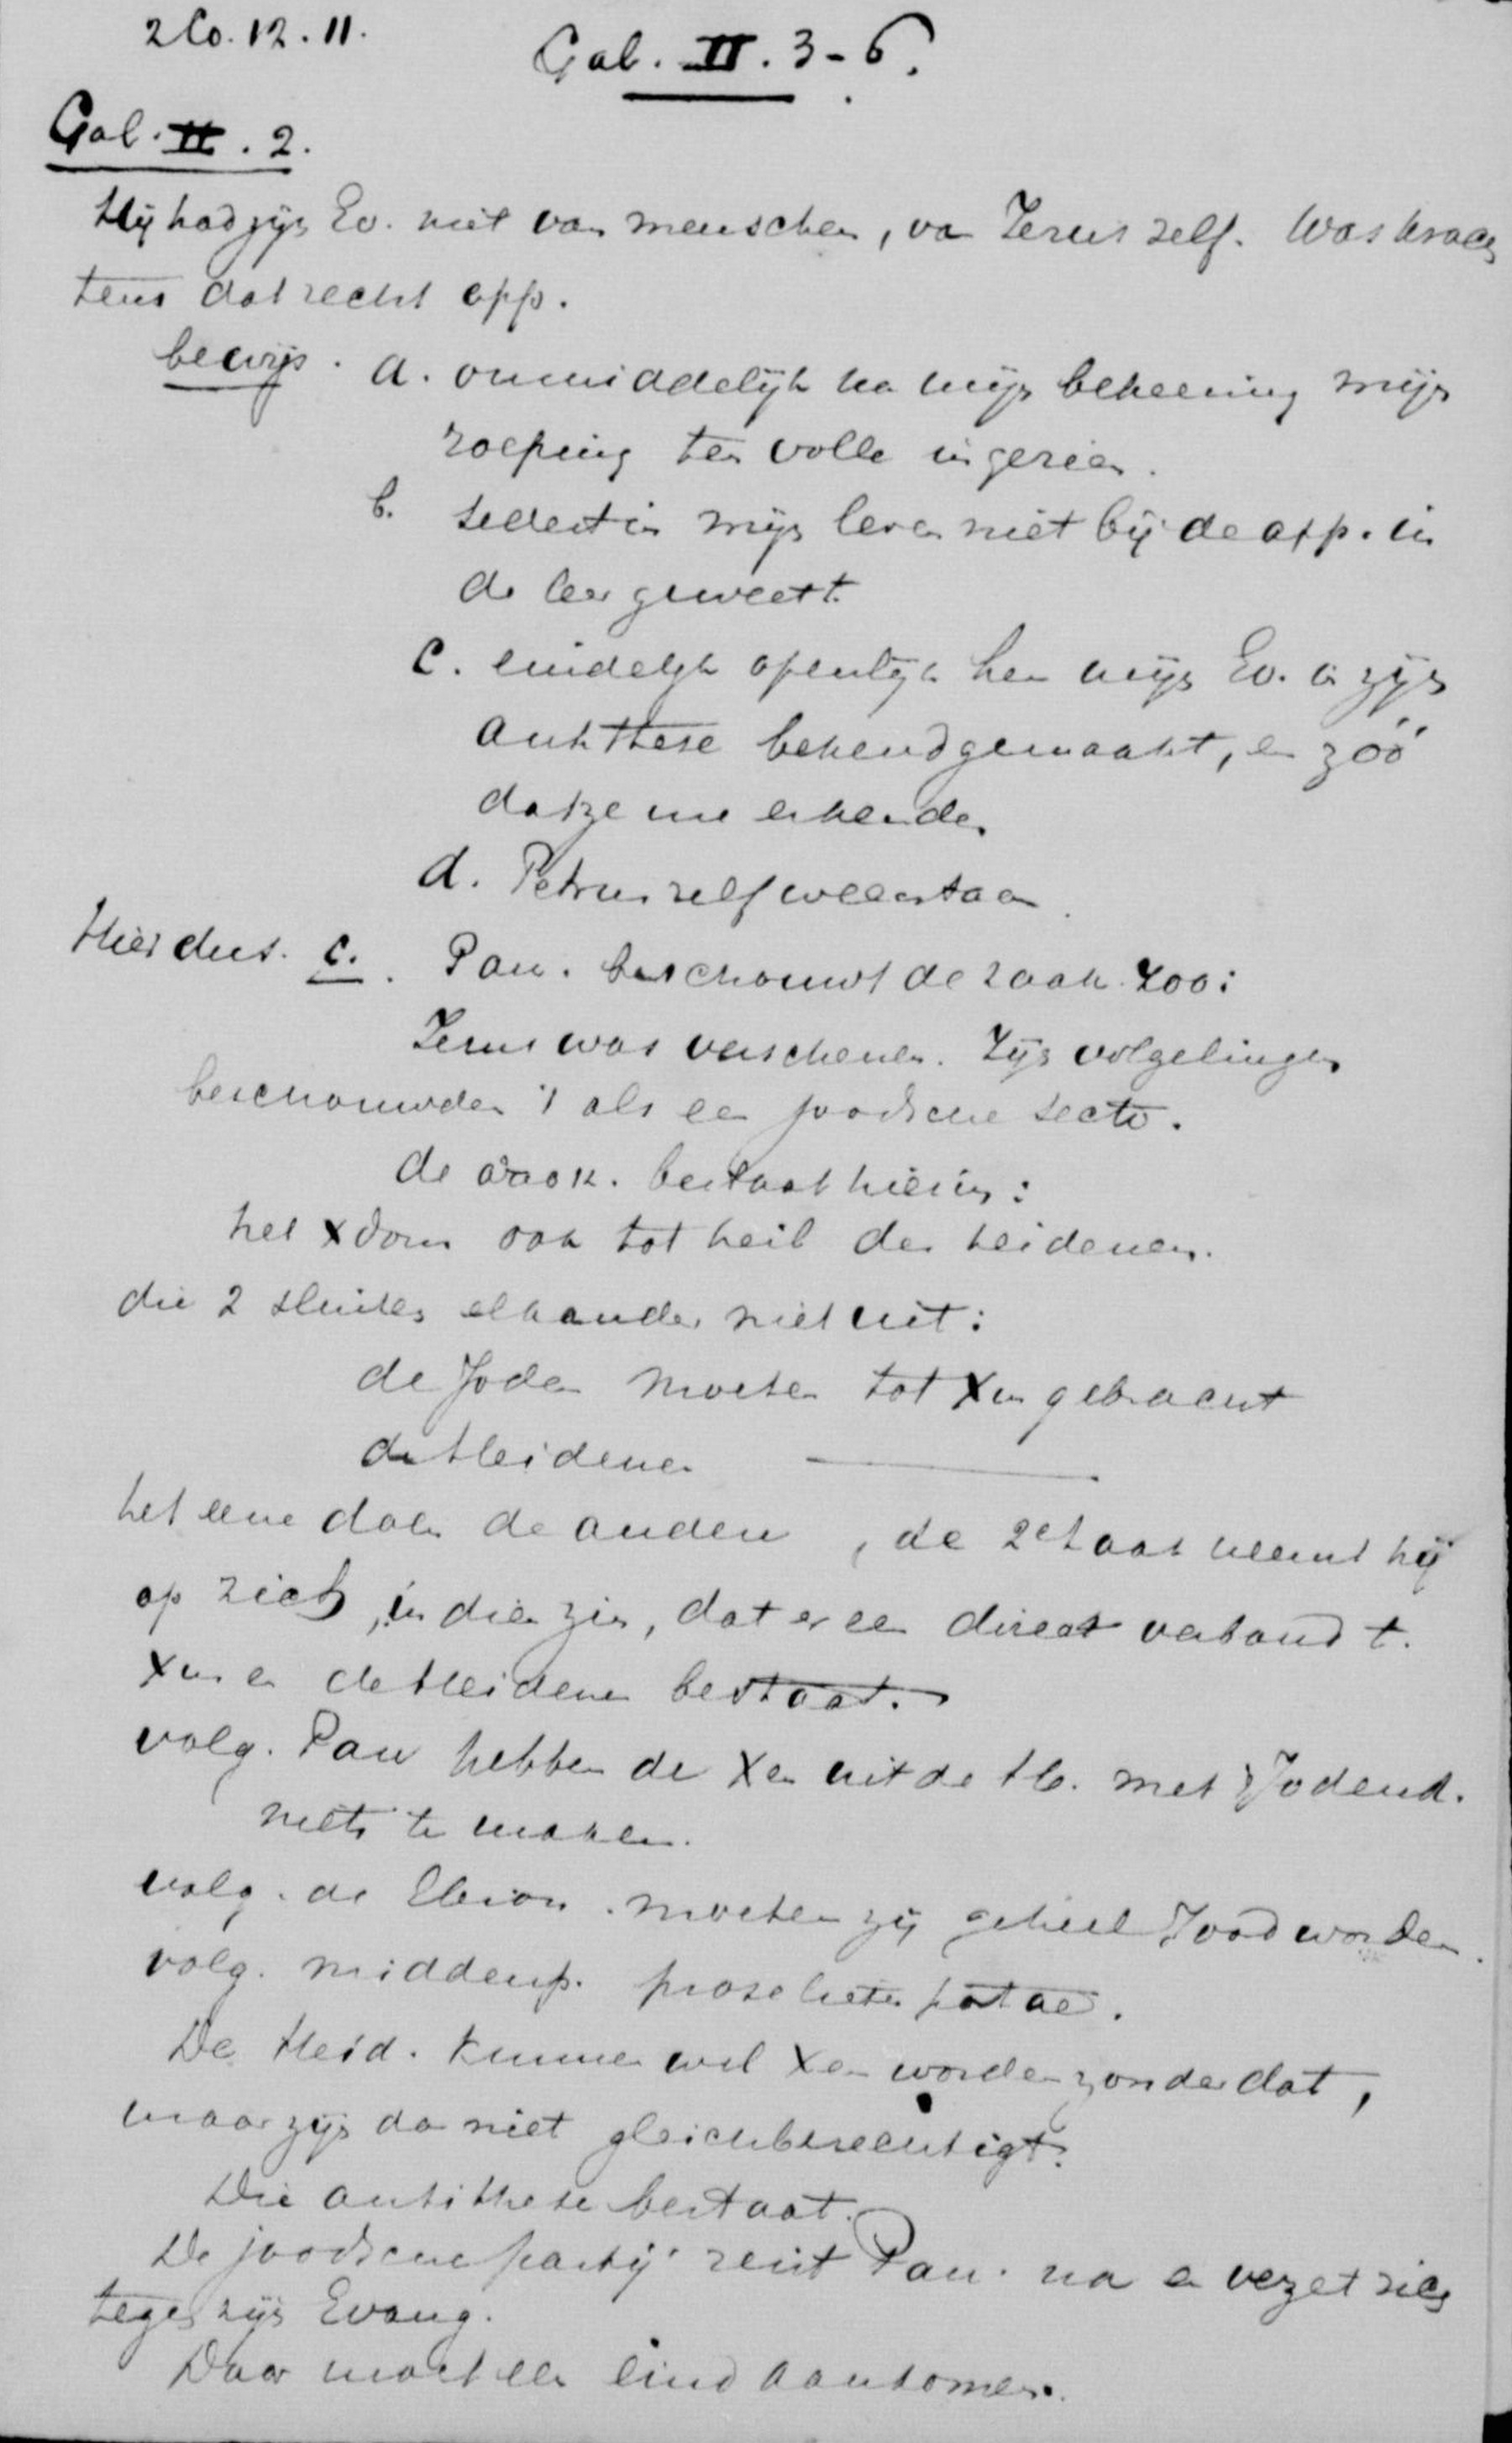 2 Co. 12. 11.
Gal. II. 3-6.
Gal. II. 2.
Hij had zijn Ev. niet van menschen, van Jezus zelf. Was krach
tens dat recht app.
bewijs. a. onmiddelijk na mijn bekeering mijn
roeping ten volle ingezien.
b. sedert in mijn leven niet bij de app. in
de leer geweest.
c. eindelijk openlijk hen mijn Ev. in zijn
antithese bekend gemaakt, en zóó
dat ze me erkenden
d. Petrus zelf weerstaan.
Hier dus. c. Pau. beschouwt de zaak zoo:
Jezus was verschenen. Zijn volgelingen
beschouwden 't als een joodsche secte.
de bestaat hierin:
het Xdom ook tot heil der heidenen.
die 2 sluiten elkander niet uit:
de Joden moeten tot Xus gebracht
de Heidenen ———
het eene doen de anderen, de 2e taak neemt hij
op zich, in dien zin, dat er een direct verband t.
Xus en de Heidenen bestaat.
volg. Pau hebben de Xen uit de H. met Jodend.
niets te maken.
volg. de Ebion. moeten zij geheel Jood worden.
volg. middenp. proselieten portae.
De Heid. kunnen wel Xen worden zonder dat,
maar zijn dan niet gleichberechtigt.
Die antithese bestaat.
De joodsche partij reist Pau. na en verzet zich
tegen zijn Evang.
Daar moet een eind aankomen.